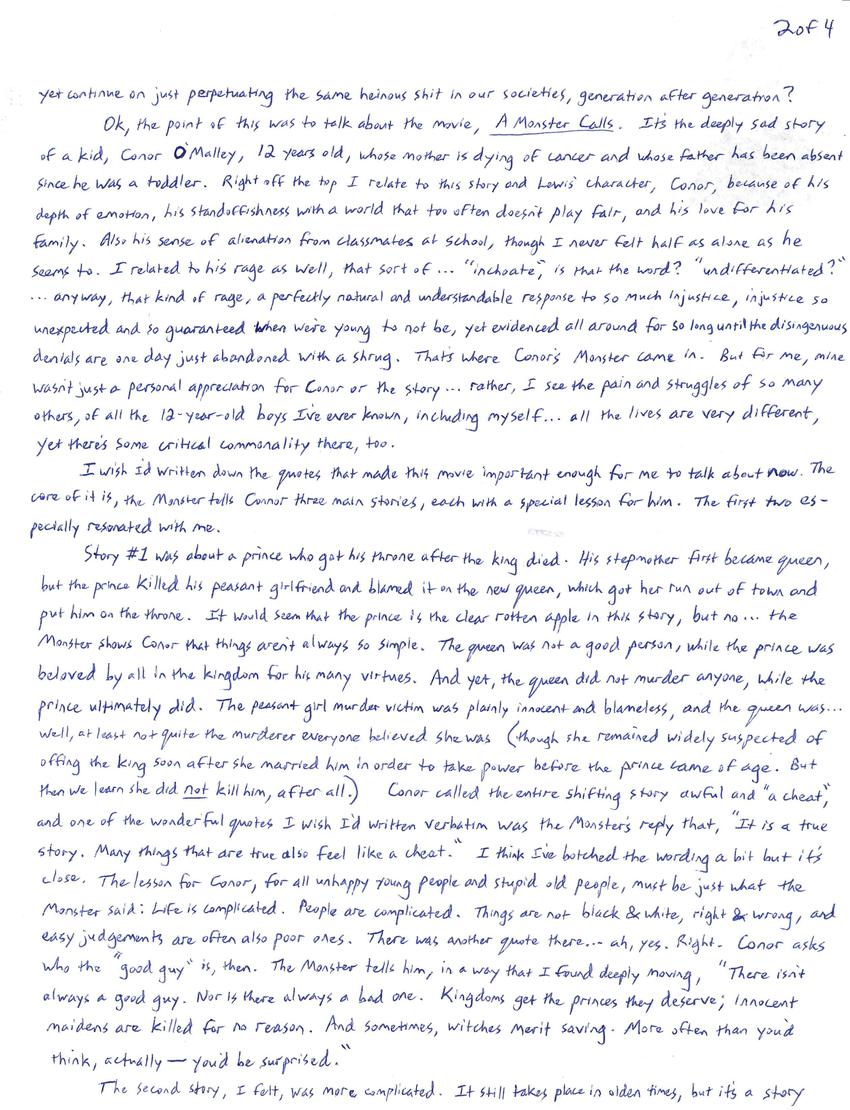 2 of 4
yet continue on just perpetuating the same heinous shit in our societies, generation after generation?
Ok, the point of this was to talk about the movie, A Monster Calls. It's the deeply sad story
of a kid, Conor O'Malley, 12 years old, whose mother is dying of cancer and whose father has been absent
since he was a toddler. Right off the top I relate to this story and Lewis' character, Conor, because of his
depth of emotion, his standoffishness with a world that too often doesn't play fair, and his love for his
family. Also his sense of alienation from classmates at school, though I never felt half as alone as he
seems to. I related to his rage as well, that sort of ... "inchoate," is that the word? "undifferentiated?"
... anyway, that kind of rage, a perfectly natural and understandable response to so much injustice, injustice so
unexpected and so guaranteed when we're young to not be, yet evidenced all around for so long until the disingenuous
denials are one day just abandoned with a shrug. That's where Conor's Monster came in. But for me, mine
wasn't just a personal appreciation for Conor or the story ... rather, I see the pain and struggles of so many
others, of all the 12-year-old boys I've ever known, including myself... all the lives are very different,
yet there's some critical commonality there, too.
I wish I'd written down the quotes that made this movie important enough for me to talk about now. The
core of it is, the Monster tells Connor three main stories, each with a special lesson for him. The first two es-
pecially resonated with me.
Story #1 was about a prince who got his throne after the king died. His stepmother first became queen,
but the prince killed his peasant girlfriend and blamed it on the new queen, which got her run out of town and
put him on the throne. It would seem that the prince is the clear rotten apple in this story, but no... the
Monster shows Conor that things aren't always so simple. The queen was not a good person, while the prince was
beloved by all in the kingdom for his many virtues. And yet, the queen did not murder anyone, while the
prince ultimately did. The peasant girl murder victim was plainly innocent and blameless, and the queen was...
well, at least not quite the murderer everyone believed she was (though she remained widely suspected of
offing the king soon after she married him in order to take power before the prince came of age. But
then we learn she did not kill him, after all.) Conor called the entire shifting story awful and "a cheat,"
and one of the wonderful quotes I wish I'd written verbatim was the Monster's reply that, "It is a true
story. Many things that are true also feel like a cheat." I think I've botched the wording a bit but it's
close. The lesson for Conor, for all unhappy young people and stupid old people, must be just what the
Monster said: Life is complicated. People are complicated. Things are not black & white, right & wrong, and
easy judgements are often also poor ones. There was another quote there... ah, yes. Right. Conor asks
who the "good guy" is, then. The Monster tells him, in a way that I found deeply moving, "There isn't
always a good guy. Nor is there always a bad one. Kingdoms get the princes they deserve; innocent
maidens are killed for no reason. And sometimes, witches merit saving. More often than you'd
think, actually — you'd be surprised."
The second story, I felt, was more complicated. It still takes place in olden times, but it's a story